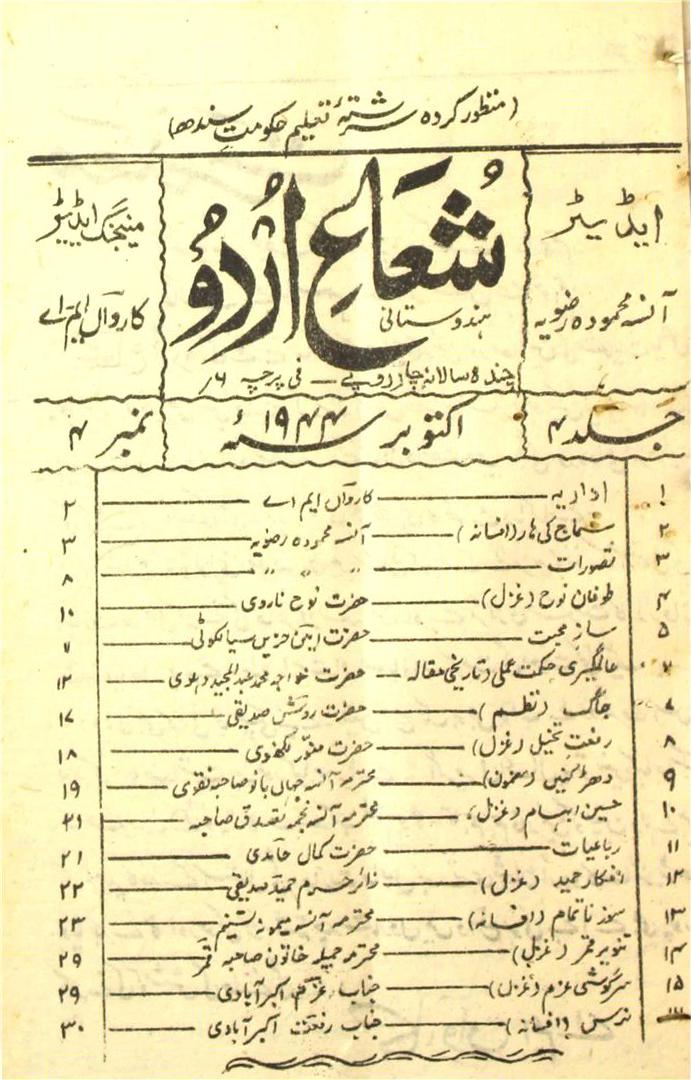 (منظور کردہ سررشتۂ تعلیم حکومتِ سندھ)
ایڈیٹر
آنسہ محمودہ رضویہ
شُعَاعِ اُردُو
ہندوستانی
چندہ سالانہ چار روپے — فی پرچہ ۶؍
مینیجنگ ایڈیٹر
کارواںؔ ایم اے
جلد ۴
اکتوبر ۱۹۴۴ء
نمبر ۴
۱ اداریہ — کارواںؔ ایم اے — ۲
۲ سماج کی ہار (افسانہ) — آنسہ محمودہ رضویہ — ۳
۳ تصورات — ״ ״ ״ — ۸
۴ طوفان نوح (غزل) — حضرت نوح ناروی — ۱۰
۵ سازِ محبت — حضرت امین حزیں سیالکوٹی — ۷
عالمگیری حکمت عملی (تاریخی مقالہ — حضرت خواجہ محمد عبدالمجید دہلوی — ۱۲
۷ جاگ (نظم) — حضرت روش صدیقی — ۱۷
۸ رفعتِ تخیل (غزل) — حضرت منور لکھنوی — ۱۸
۹ دھڑکنیں (مضمون) — محترمہ آنسہ جہاں بانو صاحبہ نقوی — ۱۹
۱۰ حسین ابہام (غزل) — محترمہ آنسہ نجمہ تصدق صاحبہ — ۲۱
۱۱ رباعیات — حضرت کمال حامدی — ۲۱
۱۲ افکار حمید (غزل) — زائر حرم حمید صدیقی — ۲۲
۱۳ سوز ناتمام (افسانہ) — محترمہ آنسہ میمونہ تسنیم — ۲۳
۱۴ تنویر قمر (غزل) — محترمہ جمیلہ خاتون صاحبہ قمرؔ — ۲۹
۱۵ سرگوشی عزم (غزل) — جناب عزمؔ اکبرآبادی — ۲۹
نرس (افسانہ) — جناب رفعتؔ اکبرآبادی — ۳۰